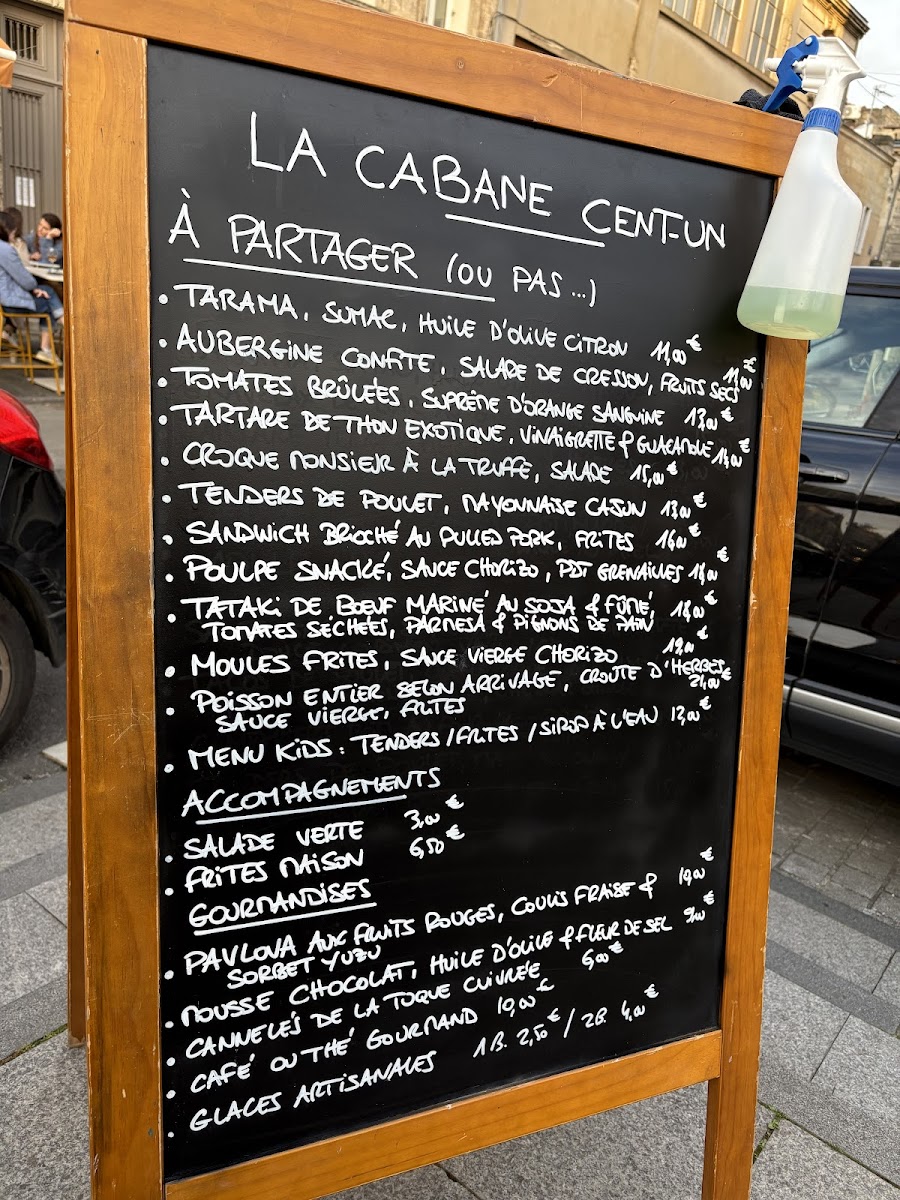 LA CABANE CENT-UN
À PARTAGER (OU PAS...)
• TARAMA, SUMAC, HUILE D'OLIVE CITRON 11,00€
• AUBERGINE CONFITE, SALADE DE CRESSON, FRUITS SECS 11,00€
• TOMATES BRÛLÉES, SUPRÊME D'ORANGE SANGUINE 13,00€
• TARTARE DE THON EXOTIQUE, VINAIGRETTE & GUACAMOLE 18,00€
• CROQUE MONSIEUR À LA TRUFFE, SALADE 15,00€
• TENDERS DE POULET, MAYONNAISE CAJUN 13,00€
• SANDWICH BRIOCHÉ AU PULLED PORK, FRITES 16,00€
• POULPE SNACKÉ, SAUCE CHORIZO, PDT GRENAILLES 18,00€
• TATAKI DE BŒUF MARINÉ AU SOJA & FUMÉ, 18,00€
TOMATES SÉCHÉES, PARMESA & PIGNONS DE PAIN
• MOULES FRITES, SAUCE VIERGE CHORIZO 19,00€
• POISSON ENTIER SELON ARRIVAGE, CROUTE D'HERBES,
SAUCE VIERGE, FRITES 21,00€
• MENU KIDS: TENDERS/FRITES/SIROP À L'EAU 12,00€
ACCOMPAGNEMENTS
• SALADE VERTE 3,00€
• FRITES MAISON 6,50€
GOURMANDISES
• PAVLOVA AUX FRUITS ROUGES, COULIS FRAISE & 10,00€
SORBET YUZU
• MOUSSE CHOCOLAT, HUILE D'OLIVE & FLEUR DE SEL 9,00€
• CANNELÉS DE LA TOQUE CUIVRÉE 6,00€
• CAFÉ OU THÉ GOURMAND 10,00€
• GLACES ARTISANALES 1B. 2,50€ / 2B. 4,00€